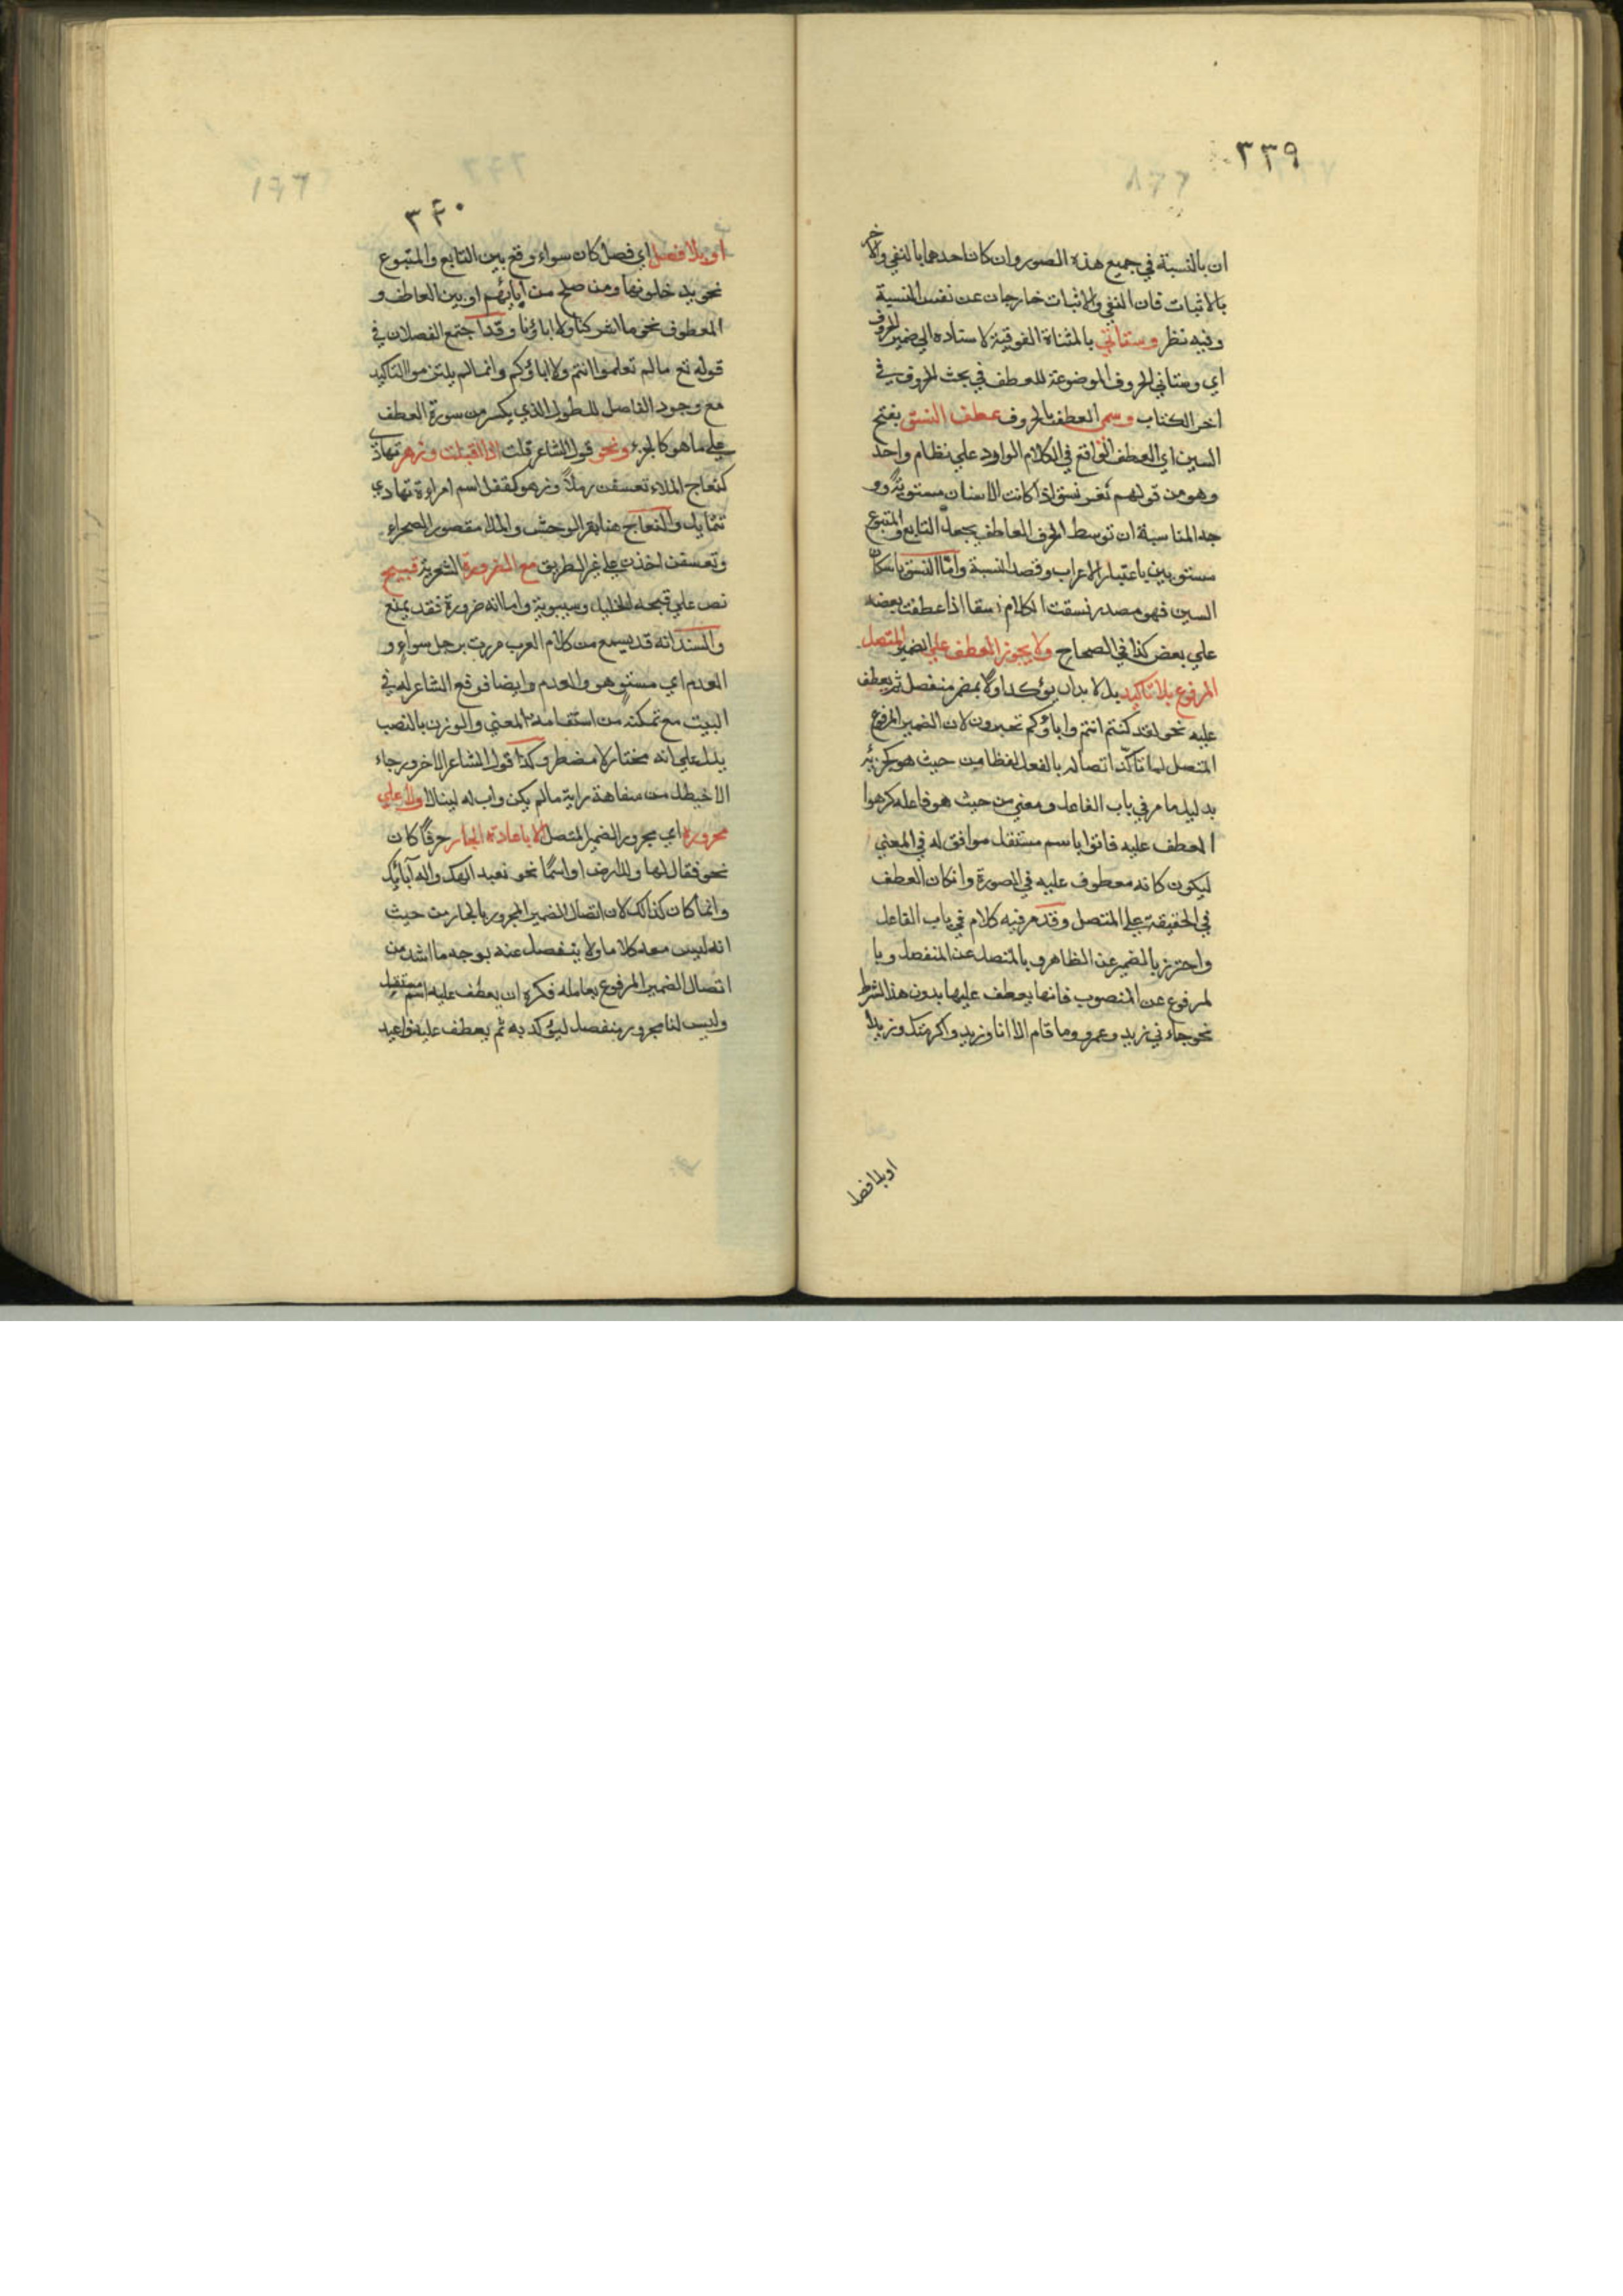 ٣٣٩
ان بالنسبة في جميع هذه الصور وان كان احدهما بالنفي والاخر
بالاثبات فان النفي والاثبات خارجان عن نفس النسبة
وفيه نظر وستأتي بالمثناة الفوقية لاسناده الي ضمير الحروف
اي وستاتي الحروف الموضوعة للعطف في بحث الحروف في
اخر الكتاب وسمي العطف بالحروف عطف النسق بفتح
السين اي العطف الواقع في الكلام الوارد علي نظام واحد
وهو من قولهم ثغر نسق اذا كانت الاسنان مستوية وو
جه المناسبة ان توسط الحرف العاطف يجعل التابع والمتبوع
مستويين باعتبار الاعراب وقصد النسبة واما النسق باسكان
السين فهو مصدر نسقت الكلام نسقا اذا عطفت بعضه
علي بعض كذا في الصحاح ولا يجوز العطف علي الضمير المتصل
المرفوع بلا تاكيد بل لا بد ان يؤكد اولا بمضمر منفصل ثم يعطف
عليه نحو لقد كنتم انتم واباؤكم تعبدون لان الضمير المرفوع
المتصل لما تاكد اتصاله بالفعل لفظا من حيث هو كجزئه
بدليل ما مر في باب الفاعل ومعني من حيث هو فاعله كرهوا
العطف عليه فاتوا باسم مستقل موافق له في المعني
ليكون كانه معطوف عليه في الصورة وان كان العطف
في الحقيقة علي المتصل وقد مر فيه كلام في باب الفاعل
واحترز بالضمير عن الظاهر وبالمتصل عن المنفصل وبا
لمرفوع عن المنصوب فانها يعطف عليها بدون هذا الشرط
نحو جاءني زيد وعمرو وما قام الا انا وزيد واكرمتك وزيدا
او بلا فصل
٣٤٠
او بلا فصل اي فصل كان سواء وقع بين التابع والمتبوع
نحو يدخلونها ومن صلح من آبائهم او بين العاطف و
المعطوف نحو ما اشركنا ولا اباؤنا وقد اجتمع الفصلان في
قوله تع مالم تعلموا انتم ولا اباؤكم وانما لم يلتزموا التاكيد
مع وجود الفاصل للطول الذي يكسر من سورة العطف
علي ما هو كالجزء ونحو قول الشاعر قلت اذا اقبلت وزهر تهادي
كنعاج الملاء تعسفن رملا وزهر كقفل اسم امراءة تهادي
تتمايل والنعاج هنا بقر الوحش والملا مقصور الصحراء
وتعسفن اخذن علي غير الطريق مع الضرورة الشعرية قبيح
نص علي قبحه الخليل وسيبوية واما انه ضرورة فقد يمنع
والسند انه قد يسمع من كلام العرب مررت برجل سواء و
العدم اي مستو هو والعدم وايضا فرفع الشاعر له في
البيت مع تمكنه من استقامة المعني والوزن بالنصب
يدل علي انه مختار لا مضطر وكذا قول الشاعر الاخر ورجاء
الاخيطل من سفاهة راية مالم يكن واب له لينالا ولا علي
مجروره اي مجرور الضمير المتصل الا باعادة الجار حرفا كان
نحو فقال لها وللارض او اسما نحو نعبد الهك واله آبائك
وانما كان كذالك لان اتصال الضمير المجرور بالجار من حيث
انه ليس معه كلاما ولا ينفصل عنه بوجه ما اشد من
اتصال الضمير المرفوع بعامله فكره ان يعطف عليه اسم مستقل
وليس لنا مجرور منفصل ليؤكد به ثم يعطف عليه فاعيد